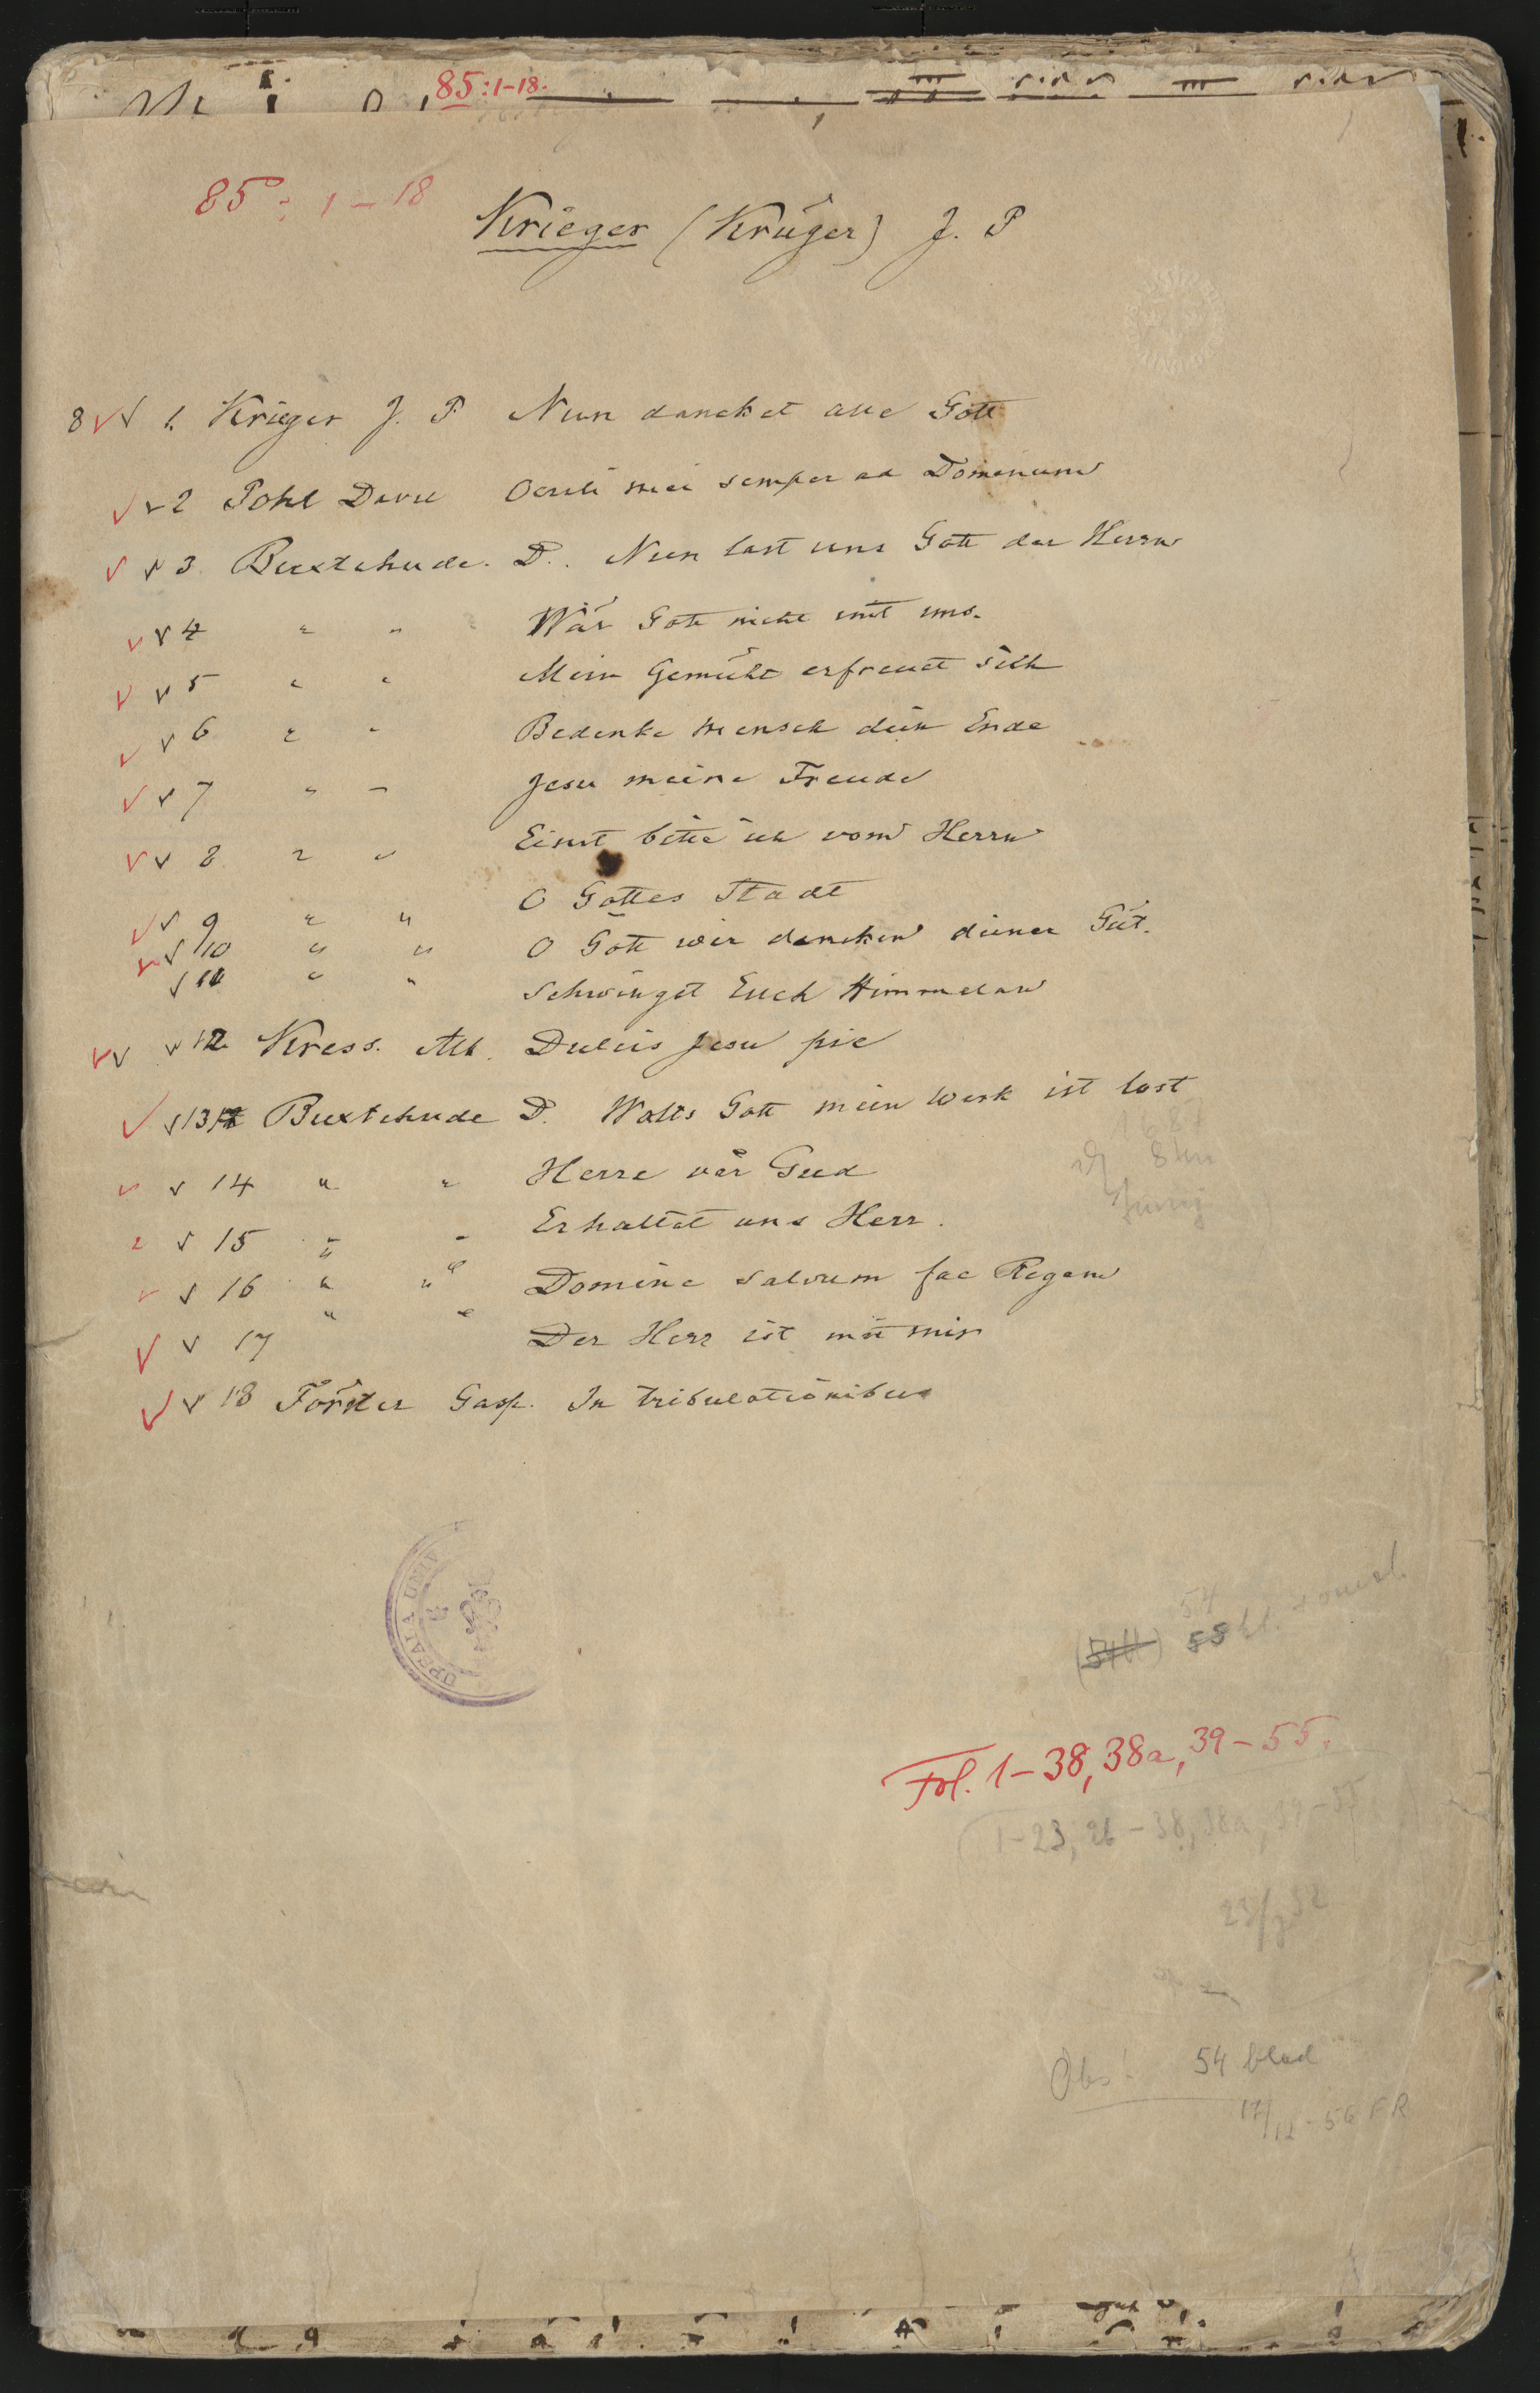 85:1-18.
85:1-18
Krieger (Krüger) J. P
8 1. Krieger J. P Nun dancket alle Gott
2 Pohl Davi Oculi mei semper ad Dominum
3 Buxtehude. D. Nun last uns Gott der Herrn
4 " " Wär Gott nicht mit uns.
5 " " Mein Gemüht erfreuet sich
6 " " Bedenke mensch dein Ende
7 " " Jesu meine Freude
8 " " Einst bitte ich vom Herrn
9 " " O Gottes Stadt
10 " " O Gott wir dancken deiner Güt.
11 " " Schwinget Euch Himmelan
12 Kress. Alb. Dulcis Jesu pie
13 Buxtehude D. Walts Gott mein Werk ist last
1687
14 " " Herre vår Gud
15 " " Erhaltet uns Herr.
16 " " Domine salvum fac Regem
17 " " Der Herr ist mit mir
18 Förster Gasp. In tribulationibus
UPSALA UNIV
54
55 bl.
Fol. 1-38, 38a, 39-55.
1-23, 26-38, 38a, 39-55
Obs! 54 blad
17/12-56 FR